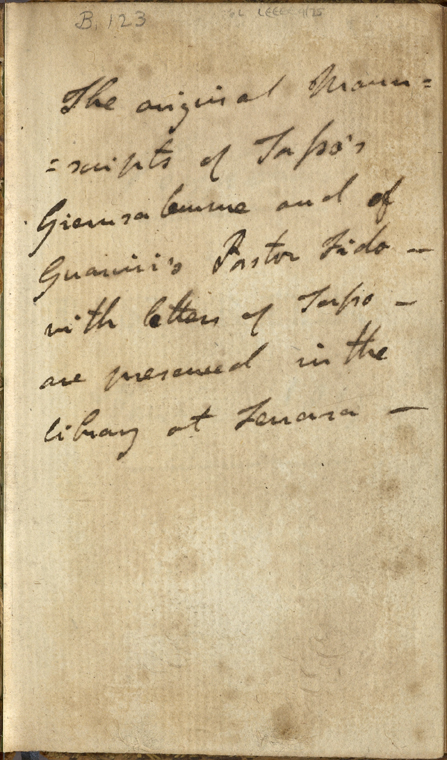 B. 123
The original Manu=
=scripts of Tasso's
Gierusalemme and of
Guarini's Pastor Fido —
with letters of Tasso —
are preserved in the
library at Ferrara —